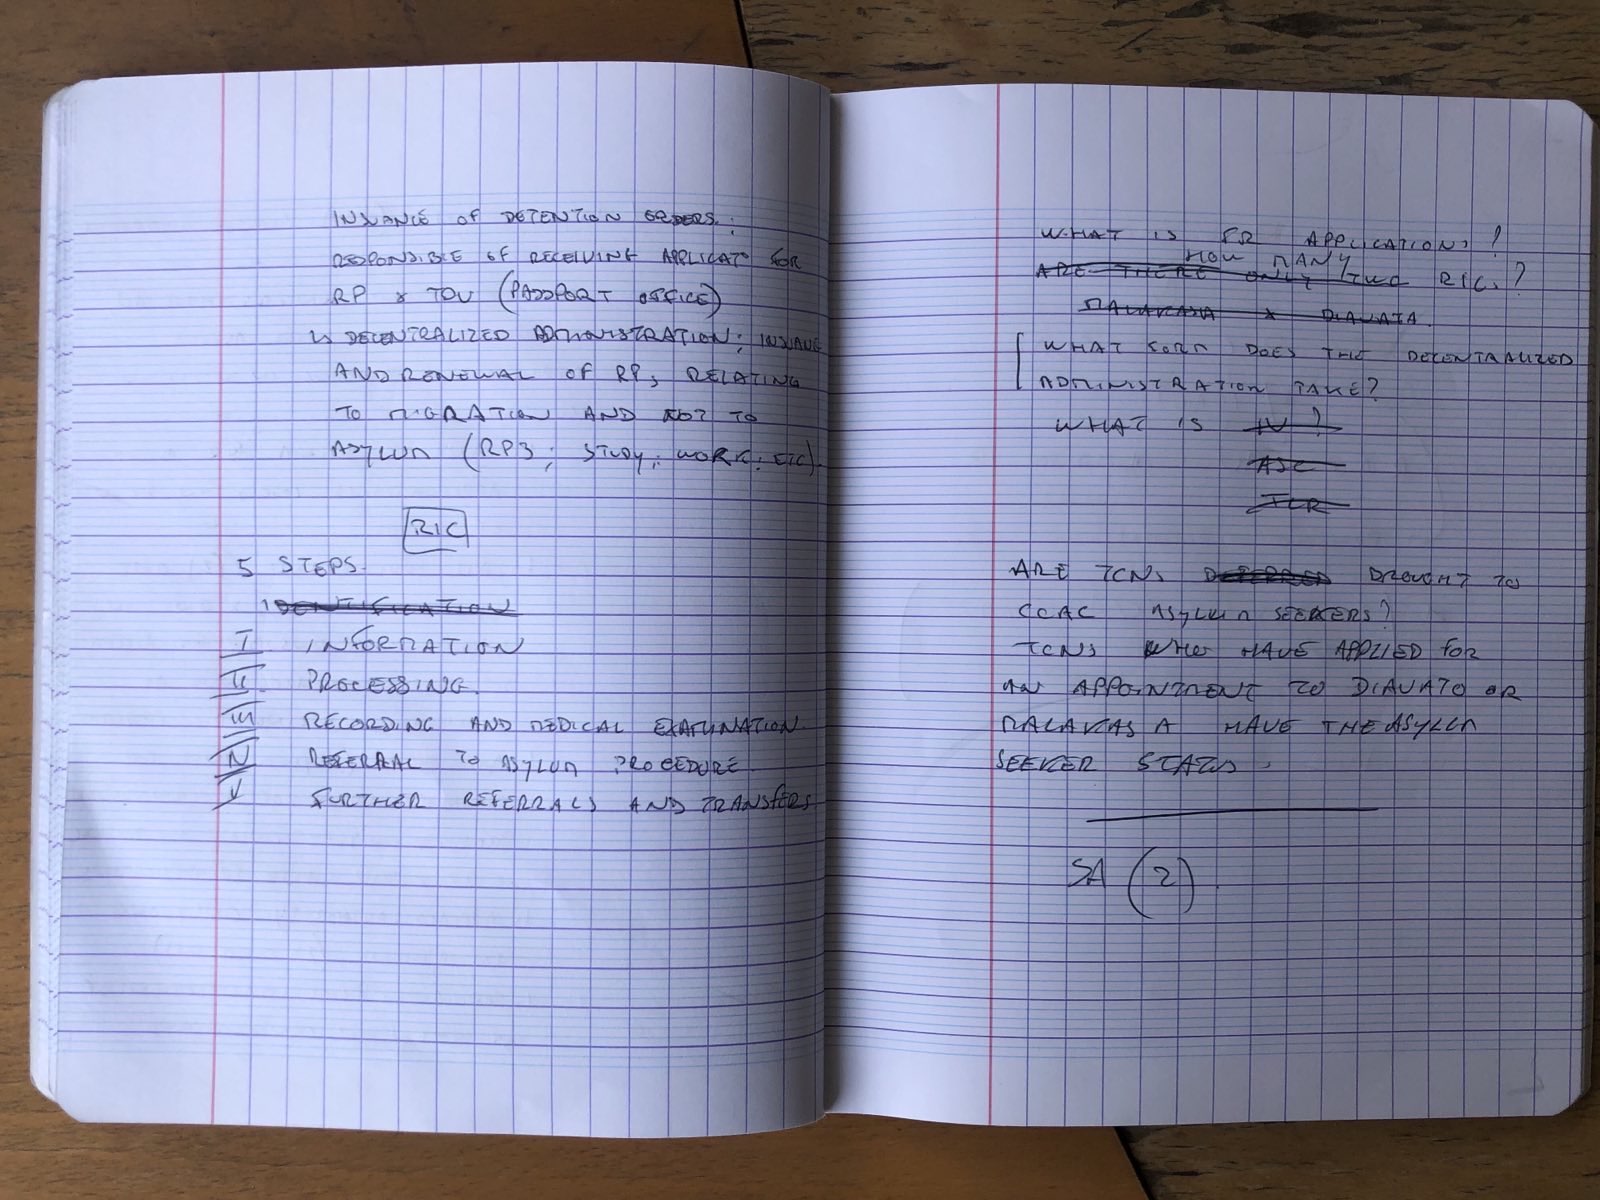 ISSUANCE OF DETENTION ORDERS.
RESPONSIBLE OF RECEIVING APPLICAT° FOR
RP & TDV (PASSPORT OFFICE)
↳ DECENTRALIZED ADMINISTRATION: ISSUANCE
AND RENEWAL OF RPs RELATING
TO MIGRATION AND NOT TO
ASYLUM (RPs; STUDY; WORK; ETC).
RIC
5 STEPS.
IDENTIFICATION
I INFORMATION
II PROCESSING.
III RECORDING AND MEDICAL EXAMINATION
IV REFERRAL TO ASYLUM PROCEDURE
V FURTHER REFERRALS AND TRANSFERS
WHAT IS FR APPLICATIONS?
HOW MANY
ARE THERE ONLY TWO RICs?
MALAKASA & DIAVATA.
WHAT FORM DOES THE DECENTRALIZED
ADMINISTRATION TAKE?
WHAT IS IV?
ASC
ICR
ARE TCNs BROUGHT TO
CCAC ASYLUM SEEKERS?
TCNs WHO HAVE APPLIED FOR
AN APPOINTMENT TO DIAVATA OR
MALAKASA HAVE THE ASYLUM
SEEKER STATUS.
SA (2).